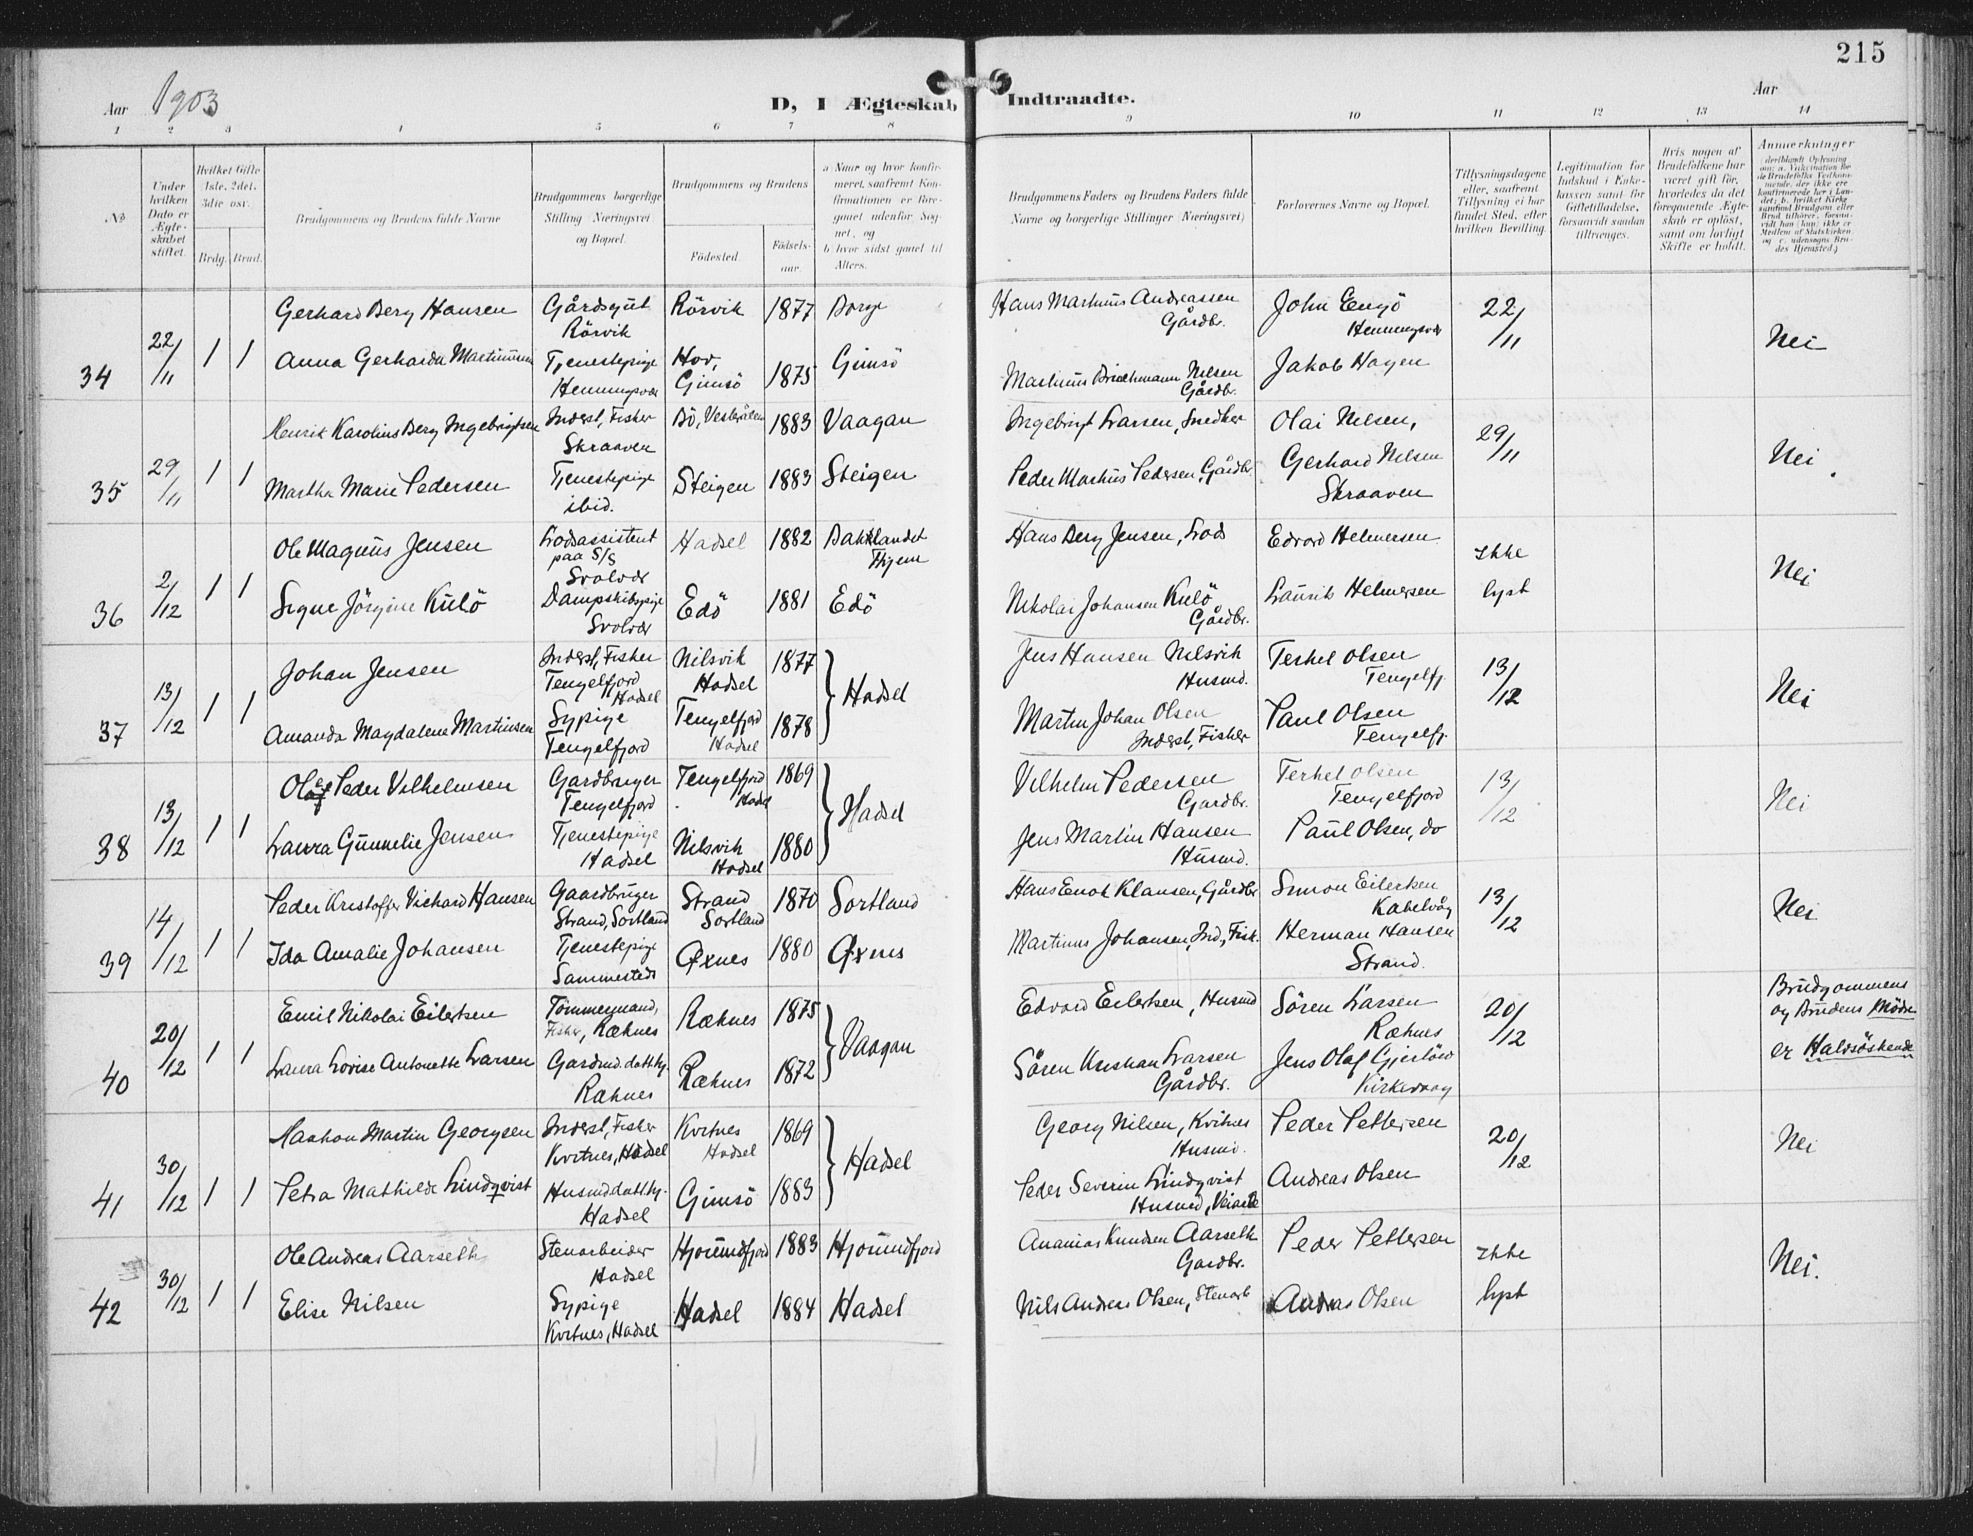 215
Aar 1903
D, I Ægteskab Indtraadte.
Aar
1 2 3 4 5 6 7 8 9 10 11 12 13 14
No
Under hvilken Dato er Ægteskabet stiftet.
Hvilket Gifte 1ste, 2det, 3die osv.
Brdg. Brud.
Brudgommens og Brudens fulde Navne
Brudgommens borgerlige Stilling (Næringsvei) og Bopæl.
Brudgommens og Brudens
Födested.
Födsels-aar.
a. Naar og hvor konfirmeret, saafremt Konfirmationen er foregaaet udenfor Sognet, og
b. hvor sidst gaaet til Alters.
Brudgommens Faders og Brudens Faders fulde Navne og borgerlige Stillinger (Næringsvei)
Forlovernes Navne og Bopæl.
Tillysningsdagene eller, saafremt Tillysning ei har fundet Sted, efter hvilken Bevilling.
Legitimation for Indskud i Enkekassen samt for Giftetilladelse, forsaavidt saadan tiltrænges.
Hvis nogen af Brudefolkene har været gift før, hvorledes da det foregaaende Ægteskab er opløst, samt om lovligt Skifte er holdt.
Anmerkninger
34 22/11 1 1
Gerhard Berg Hansen Gårdsgut Rörvik Rörvik 1877 Borge Hans Martinus Andreassen Gårdbr. John Engö Henningsvær 22/11 Nei
Anna Gerharda Martinussen Tjenestepige Henningsvær Hov, Gimsö 1875 Gimsö Martinus Nilsen Gårdbr. Jakob Hagen
35 29/11 1 1
Henrik Karolius Berg Ingebrigtsen Inderst, Fisker Skraaven Bö, Vesterålen 1883 Vaagan Ingebrigt Larsen, Snedker Olai Nilsen, 29/11 Nei
Martha Marie Pedersen Tjenestepige ibid. Steigen 1883 Steigen Peder Martinus Pedersen, Gårdbr. Gerhard Nilsen Skraaven
36 2/12 1 1
Ole Magnus Jensen Lodsassistent paa S/S Svolvær Hadsel 1882 Baklandet Thjem Hans Berg Jensen, Lods Edvard Helmersen Ikke lyst Nei
Signe Jörgine Kulö Dampskibspige Svolvær Edö 1881 Edö Nikolai Johansen Kulö Gårdbr. Laurits Helmersen
37 13/12 1 1
Johan Jensen Inderst, Fisker Tengelfjord Hadsel Nilsvik Hadsel 1877 Hadsel Jens Hansen Nilsvik Husmd. Terkel Olsen Tengelfj. 13/12 Nei
Amanda Magdalene Martinsen Sypige Tengelfjord Tengelfjord Hadsel 1878 Martin Johan Olsen Inderst, Fisker Paul Olsen Tengelfj.
38 13/12 1 1
Olaf Peder Vilhelmsen Gardbruger Tengelfjord Tengelfjord Hadsel 1869 Hadsel Vilhelm Pedersen Gardbr. Terkel Olsen Tengelfjord 13/12 Nei
Laura Gunnelie Jensen Tjenestepige Hadsel Nilsvik Hadsel 1880 Jens Martin Hansen Husmd. Paul Olsen, do
39 14/12 1 1
Peder Kristoffer Richard Hansen Gaardbruger Strand, Sortland Strand Sortland 1870 Sortland Hans Enok Klausen, Gårdbr Simon Eilertsen Kabelvåg 13/12 Nei
Ida Amalie Johansen Tjenestepige Sammesteds Øxnes 1880 Øxnes Martinus Johansen, Ind., Fisk. Herman Hansen Strand.
40 20/12 1 1
Emil Nikolai Eilertsen Tømmermand, Fisker, Ræknes Ræknes 1875 Vaagan Edvard Eilertsen, Husmd Sören Larsen Ræknes 20/12 Brudgommens og Brudens Mødre er Halvsöskende
Laura Lovise Antonette Larsen Gardmd. datt. Ræknes Ræknes 1872 Sören Kristian Larsen Gårdbr. Jens Olaf Gjerlöw Kirkevaag
41 30/12 1 1
Haakon Martin Georgsen Inderst, Fisker Kvitnes, Hadsel Kvitnes Hadsel 1869 Hadsel Georg Nilsen, Kvitnes Husmd. Peder Pettersen 20/12 Nei
Petra Mathilde Lindqvist Husmd.datt. Hadsel Gimsö 1883 Peder Severin Lindqvist Husmd, Andreas Olsen
42 30/12 1 1
Ole Andreas Aarseth Stenarbeider Hadsel Hjorundfjord 1883 Hjorundfjord Ananias Knudsen Aarseth Gardbr. Peder Pettersen Ikke lyst Nei.
Elise Nilsen Sypige Kvitnes, Hadsel Hadsel 1884 Hadsel Nils Andreas Olsen, Stenarb Andreas Olsen